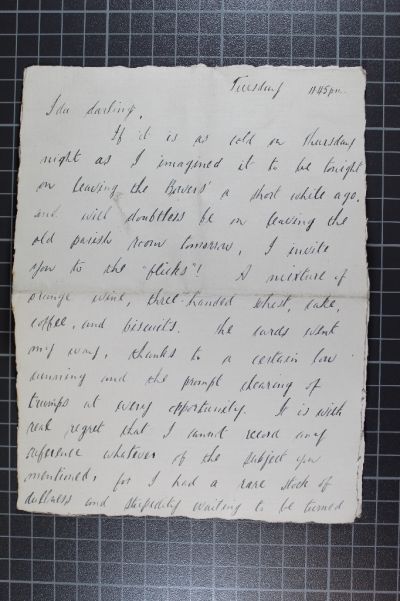 Tuesday 11.45 pm.
Ida darling,
If it is as cold on Thursday
night as I imagined it to be tonight
on leaving the Bowers' a short while ago,
and will doubtless be on leaving the
old parish room tomorrow, I invite
you to the "flicks"! A mixture of
orange wine, three-handed whist, cake,
coffee, and biscuits. The cards went
my way, thanks to a certain low
cunning and the prompt clearing of
trumps at every opportunity. It is with
real regret that I cannot record any
reference whatever of the subject you
mentioned, for I had a rare stock of
dullness and stupidity waiting to be turned